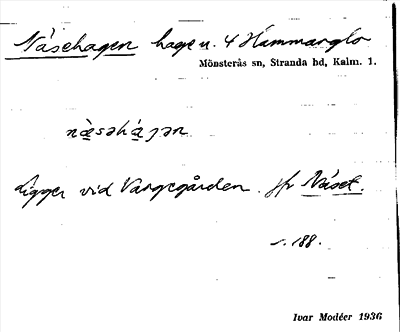 Näsehagen hage u. 4 Hammarglo
Mönsterås sn, Stranda hd, Kalm. l.
næ̀səhá̱gən
Ligger vid Vargegården. Jfr Näset.
s. 188.
Ivar Modéer 1936